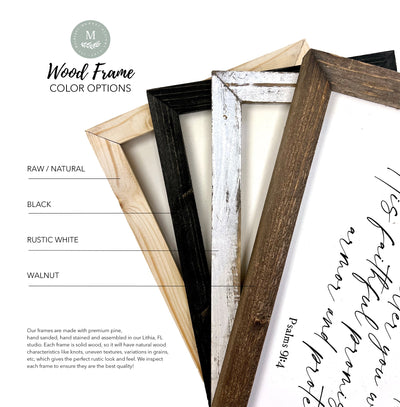 M
Wood Frame
COLOR OPTIONS
RAW / NATURAL
BLACK
RUSTIC WHITE
WALNUT
Our frames are made with premium pine,
hand sanded, hand stained and assembled in our Lithia, FL
studio. Each frame is solid wood, so it will have natural wood
characteristics like knots, uneven textures, variations in grains,
etc, which gives the perfect rustic look and feel. We inspect
each frame to ensure they are the best quality!
you
His faithful
promi
armor and prote
Psalms 91:4